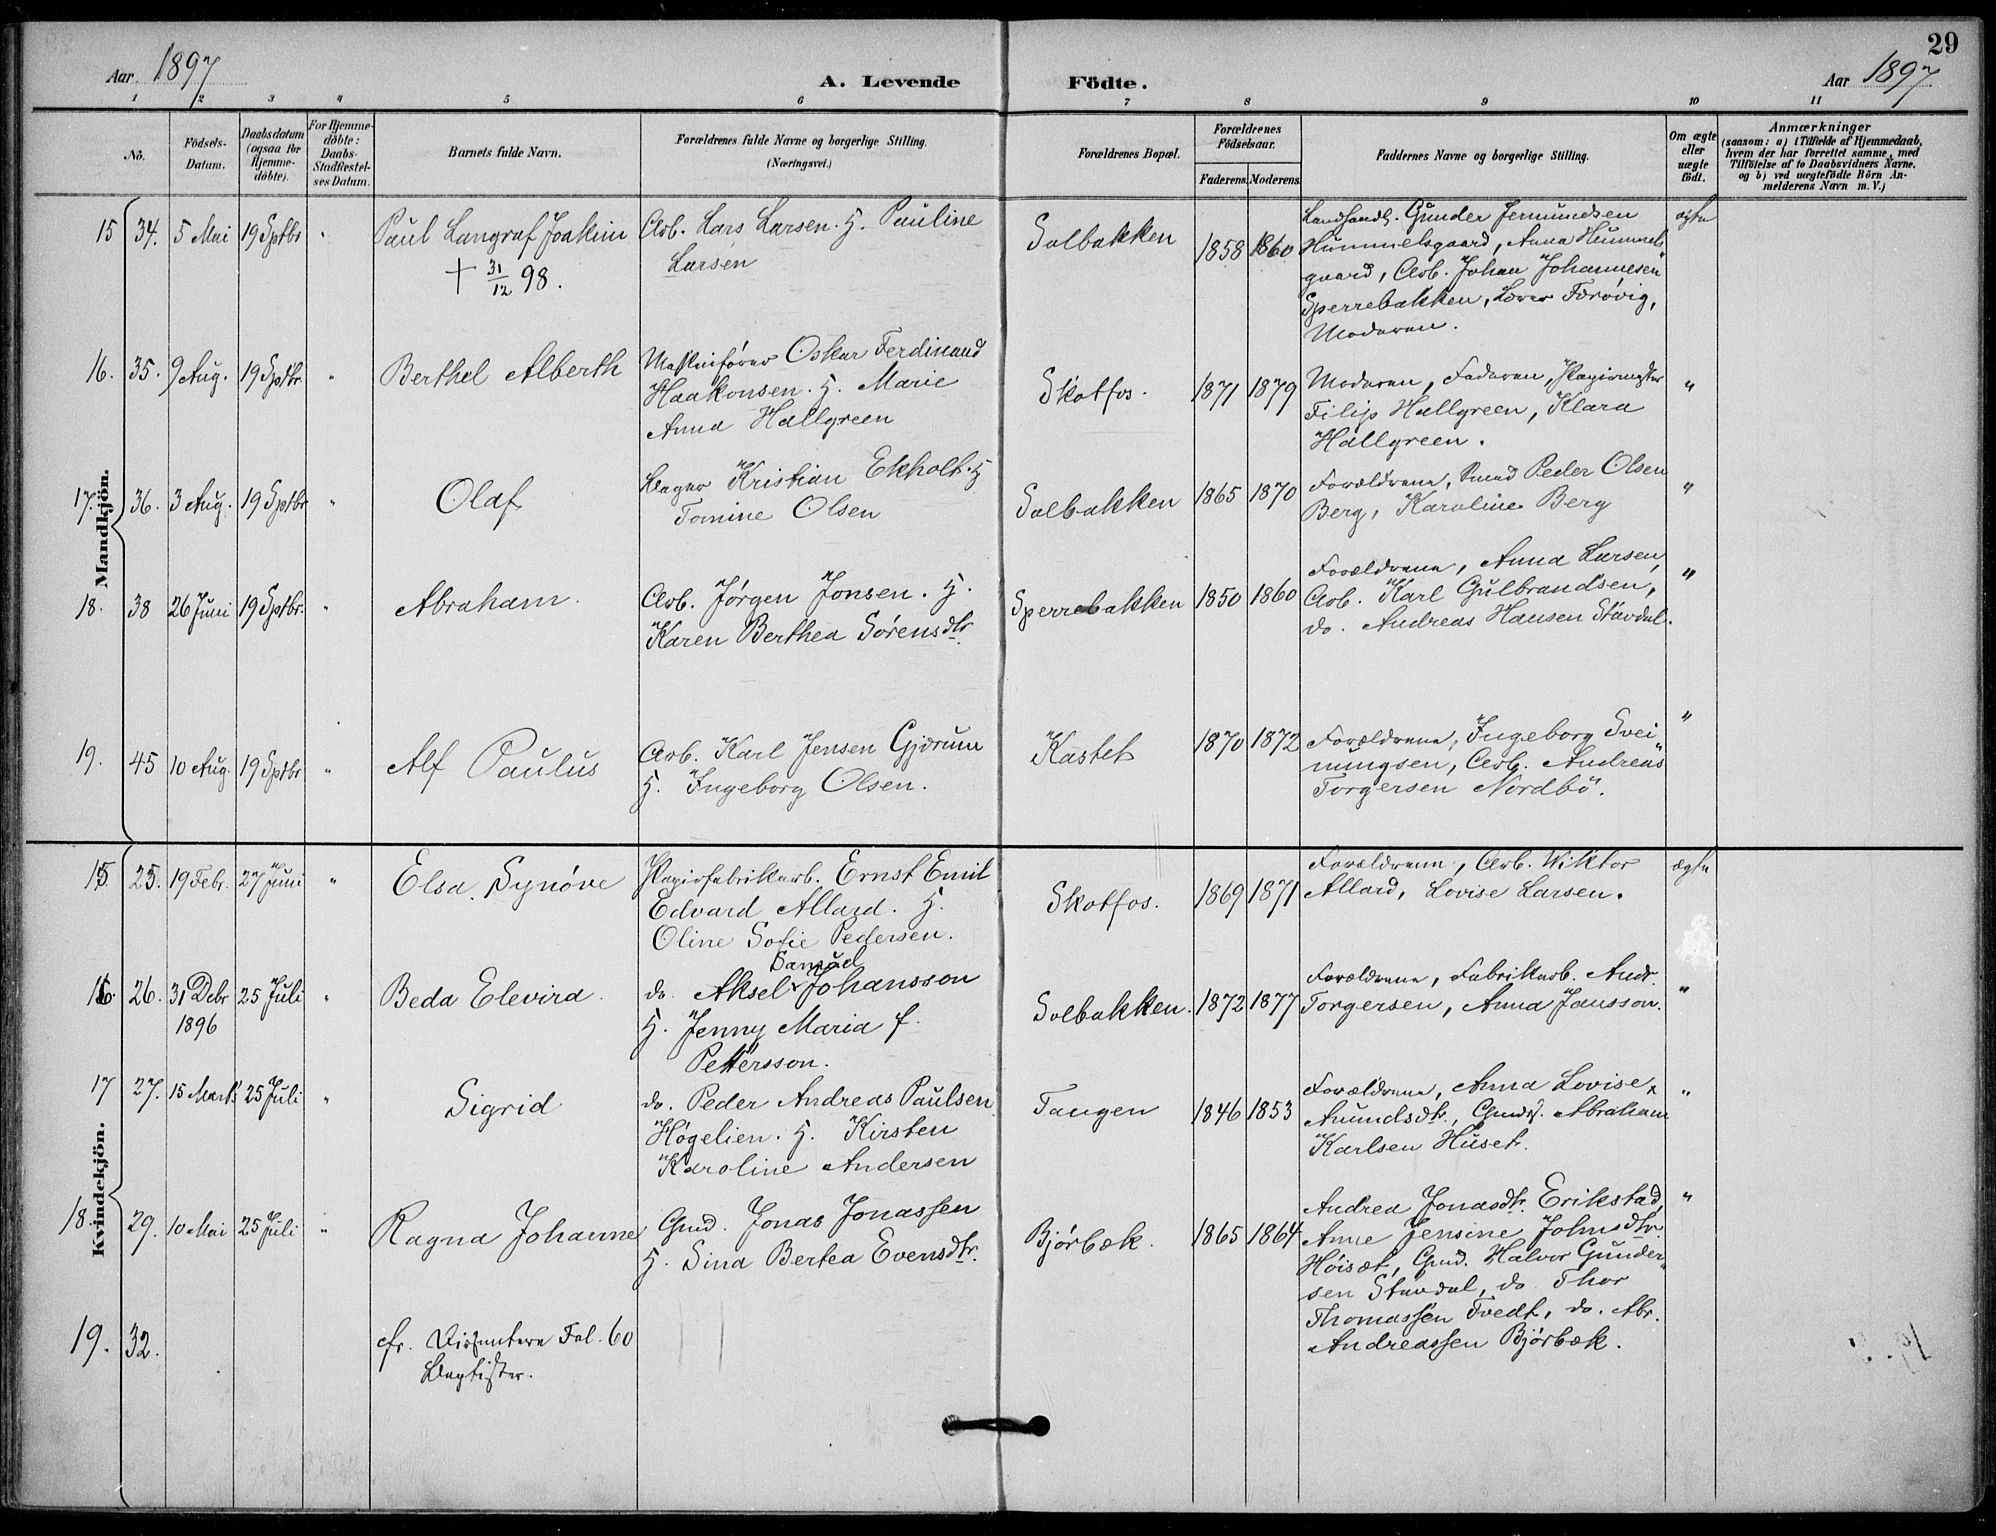 29
Aar 1897
A. Levende Födte.
Aar 1897
1 2 3 4 5 6 7 8 9 10 11
No.
Födsels-
Datum.
Daabsdatum
(ogsaa for
Hjemme-
döbte).
For Hjemme-
döbte:
Daabs-
Stadfæstel-
ses Datum.
Barnets fulde Navn.
Forældrenes fulde Navne og borgerlige Stilling.
(Næringsvei.)
Forældrenes Bopæl.
Forældrenes
Födselsaar.
Faderens. Moderens.
Faddernes Navne og borgerlige Stilling.
Om ægte
eller
uægte
født.
Anmærkninger
(saasom: a) i Tilfælde af Hjemmedaab,
hvem der har forrettet samme, med
Tilföielse af to Daabsvidners Navne.
og b) ved uægtefödte Börn An-
melderens Navn m. V.)
Mandkjön.
15 34. 5 Mai 19 Sptbr "
Paul Langraf Joakim
+ 31/12 98.
Arb. Lars Larsen. H. Pauline
Larsen
Solbakken
1858 1860
Landhandl. Gunder Jermundsen
Hummelsgaard, Anna Hummels"
gaard, Arb. Johan Johannesen
Sperrebakken, Lærer Færøvig,
Moderen.
ægte
16. 35. 9 Aug. 19 Sptbr "
Berthel Alberth
Maskinfører Oskar Ferdinand
Haakonsen. H. Marie
Anna Hallgreen
Skotfos.
1871 1879
Moderen, Faderen, Papirmester
Filip Hallgreen, Klara
Hallgreen.
"
17. 36. 3 Aug. 19 Sptbr "
Olaf
Bager Kristian Ekholt. H
Tomine Olsen
Solbakken
1865 1870
Forældrene, Smed Peder Olsen
Berg, Karoline Berg
"
18. 38 26 Juni 19 Sptbr. "
Abraham.
Arb. Jørgen Jonsen. H.
Karen Berthea Sørensdtr.
Sperrebakken
1850 1860
Forældrene, Anna Larsen,
Arb. Karl Gulbrandsen,
do. Andreas Hansen Stavdal.
"
19. 45 10 Aug. 19 Sptbr "
Alf Paulus
Arb. Karl Jensen Gjærum
H. Ingeborg Olsen.
Kastet
1870 1872
Forældrene, Ingeborg Svei
nungsen, Arb. Andreas
Torgersen Nordbö.
"
Kvindekjön.
15. 25. 19 Febr. 27 Juni "
Elsa Synöve
Papirfabrikarb. Ernst Emil
Edvard Allard. H.
Oline Sofie Pedersen.
Skotfos.
1869 1871
Forældrene, Arb. Wiktor
Allard, Lovise Larsen.
ægte
16. 26. 31 Debr 25 Juli "
1896
Beda Elevira.
Samuel
do. Aksel Johansson
H. Jenny Maria f.
Pettersson.
Solbakken.
1872 1877
Forældrene, Fabrikarb. Andr.
Torgersen, Anna Jansson.
"
17 27. 15 Marts 25 Juli "
Sigrid
do. Peder Andreas Paulsen
Høgelien. H. Kirsten
Karoline Andersen
Tangen
1846 1853
Forældrene, Anna Lovise
Amundsdtr., Gmdsf. Abraham
Karlsen Huset.
"
18. 29. 10 Mai 25 Juli "
Ragna Johanne
Gmd. Jonas Jonassen
H. Sina Bertea Evensdtr.
Bjørbæk.
1865 1864
Andrea Jonasdtr. Erikstad,
Anne Jensine Johnsdtr.
Höisæt, Gmd. Halvor Gunder"
sen Stavdal, do Thor
Thomassen Tvedt, do. Abr.
Andreassen Bjørbæk.
"
19. 32.
cfr. Dissentere Fol. 60
Baptister.